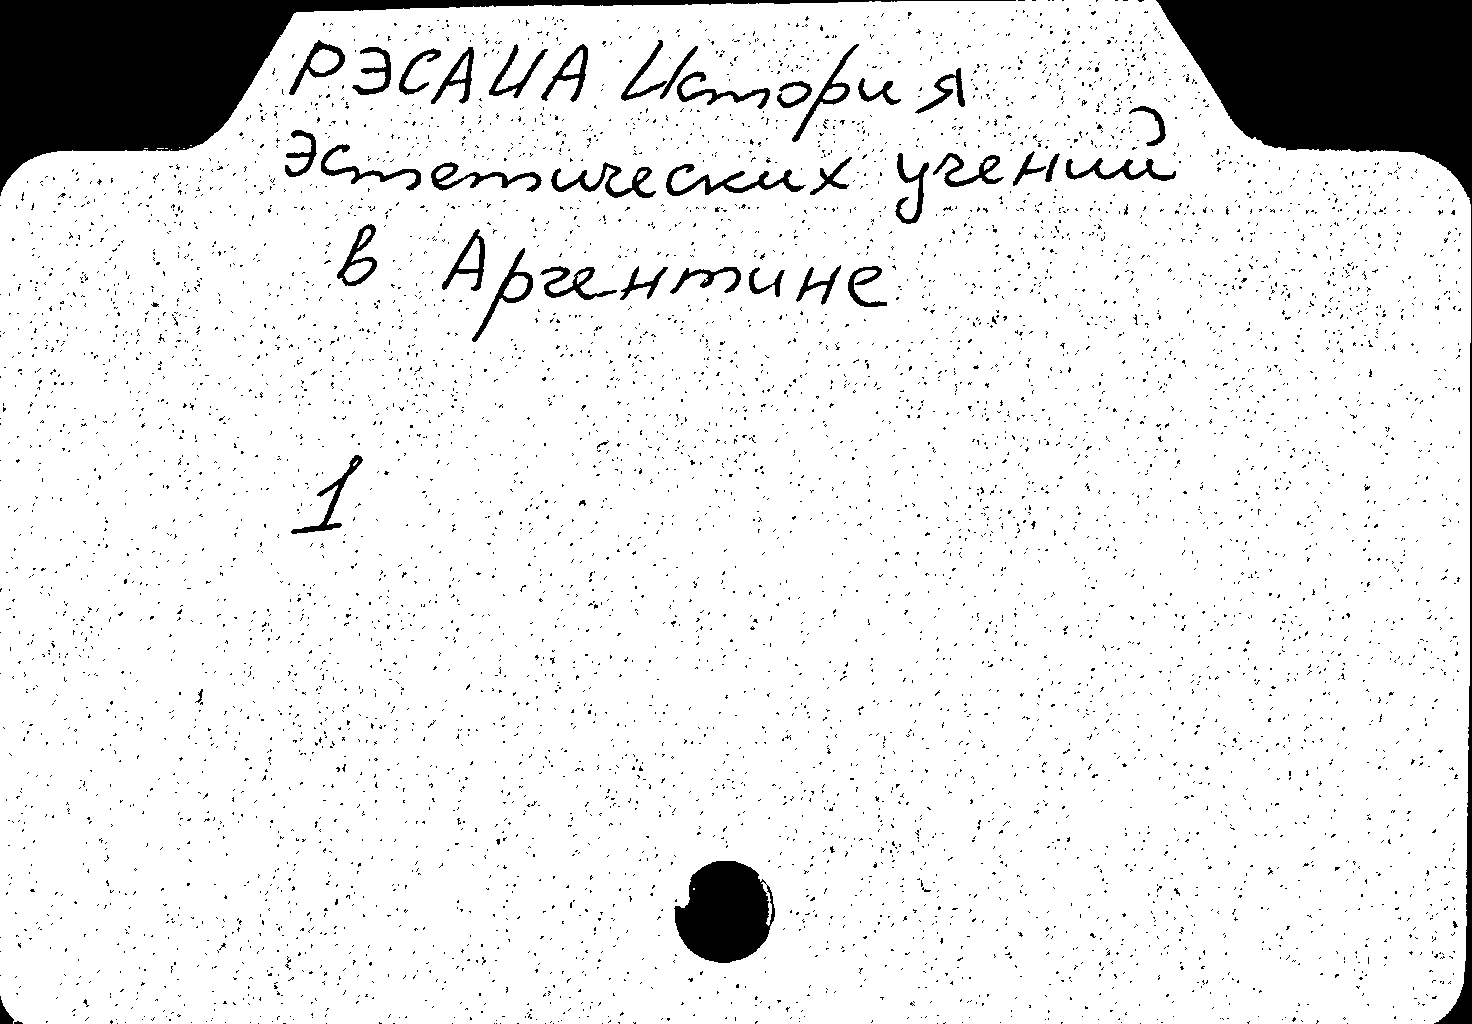 РЭСАИА История
эстетических учений
в Аргентине
1